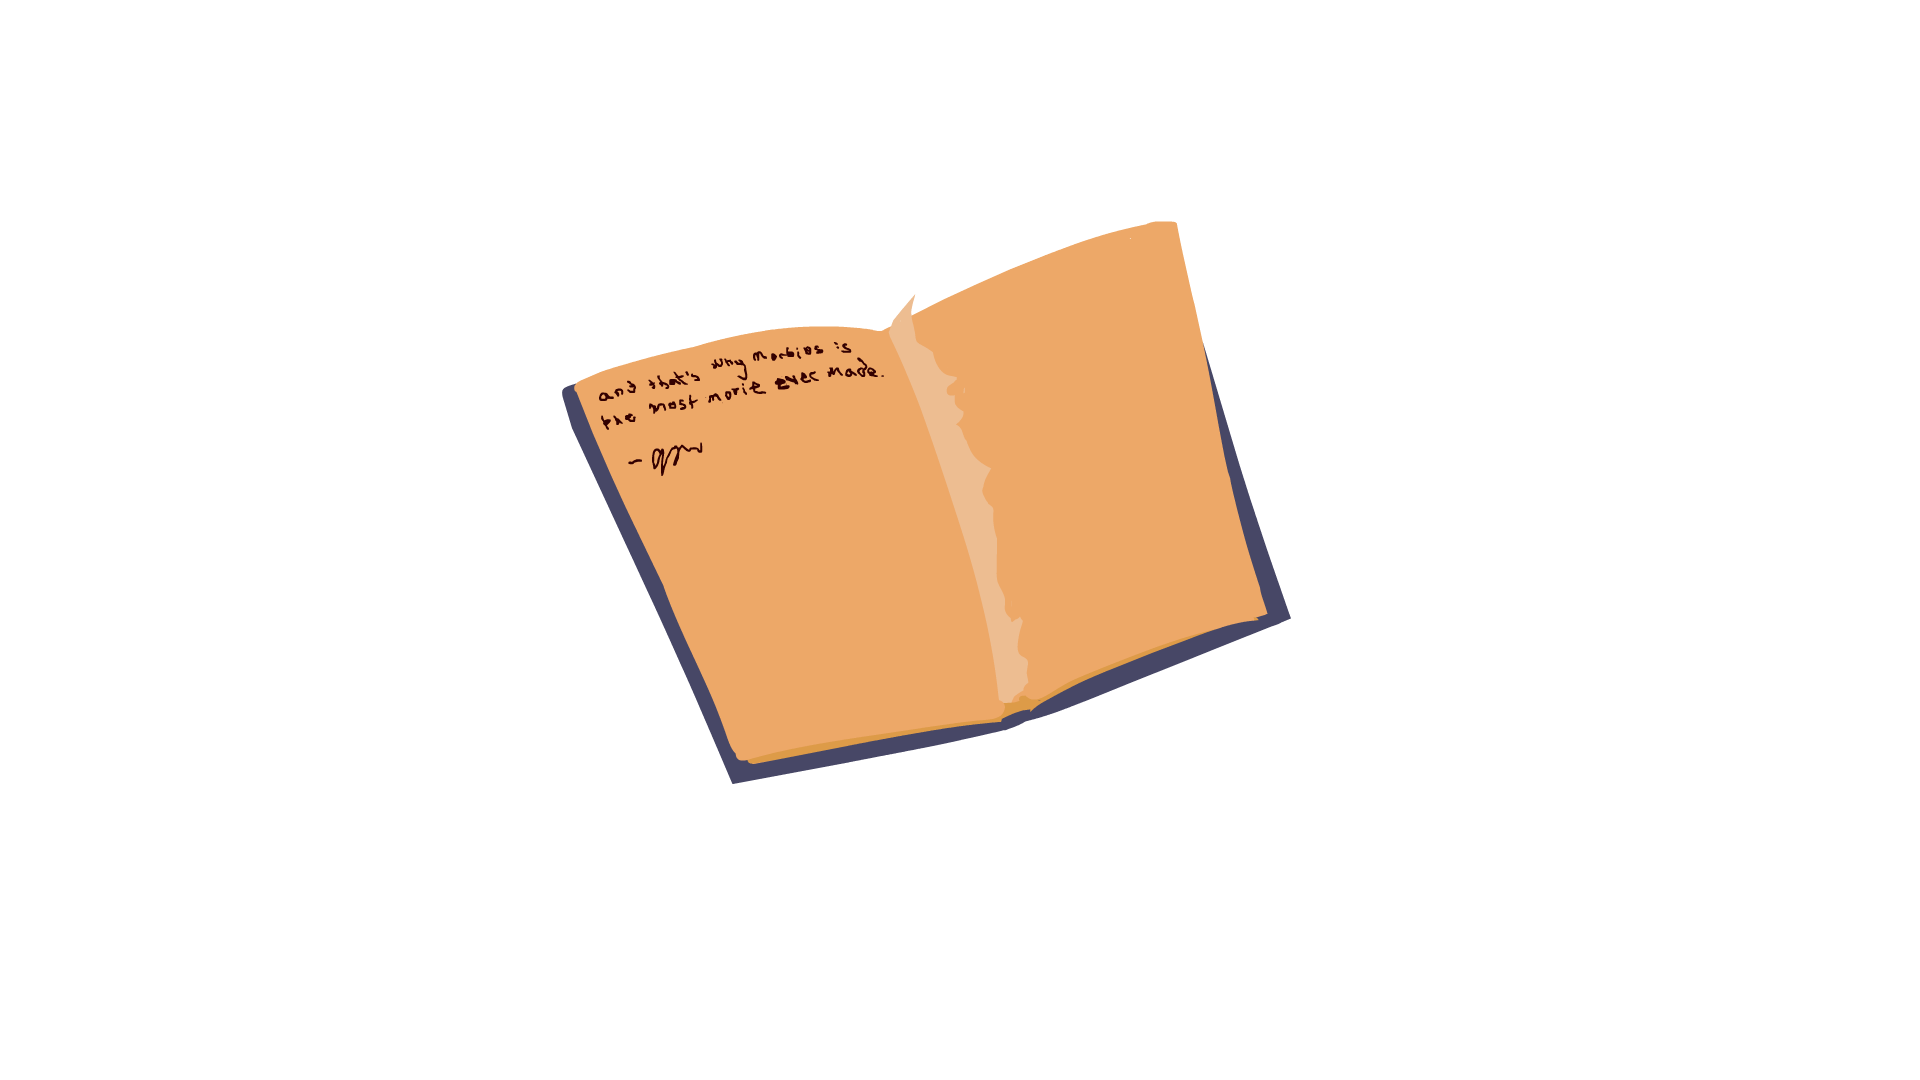 and that's why morbios is
the most movie ever made.